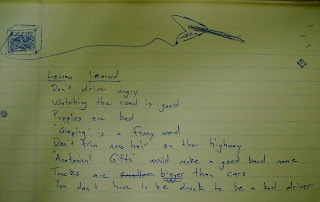 Lessons Learned
Don't drive angry
Watching the road is good
Puppies are bad
"Groping" is a funny word
Don't trim nose hair on the highway
"Anatomical Gifts" would make a good band name
Trucks are smaller bigger than cars
You don't have to be drunk to be a bad driver